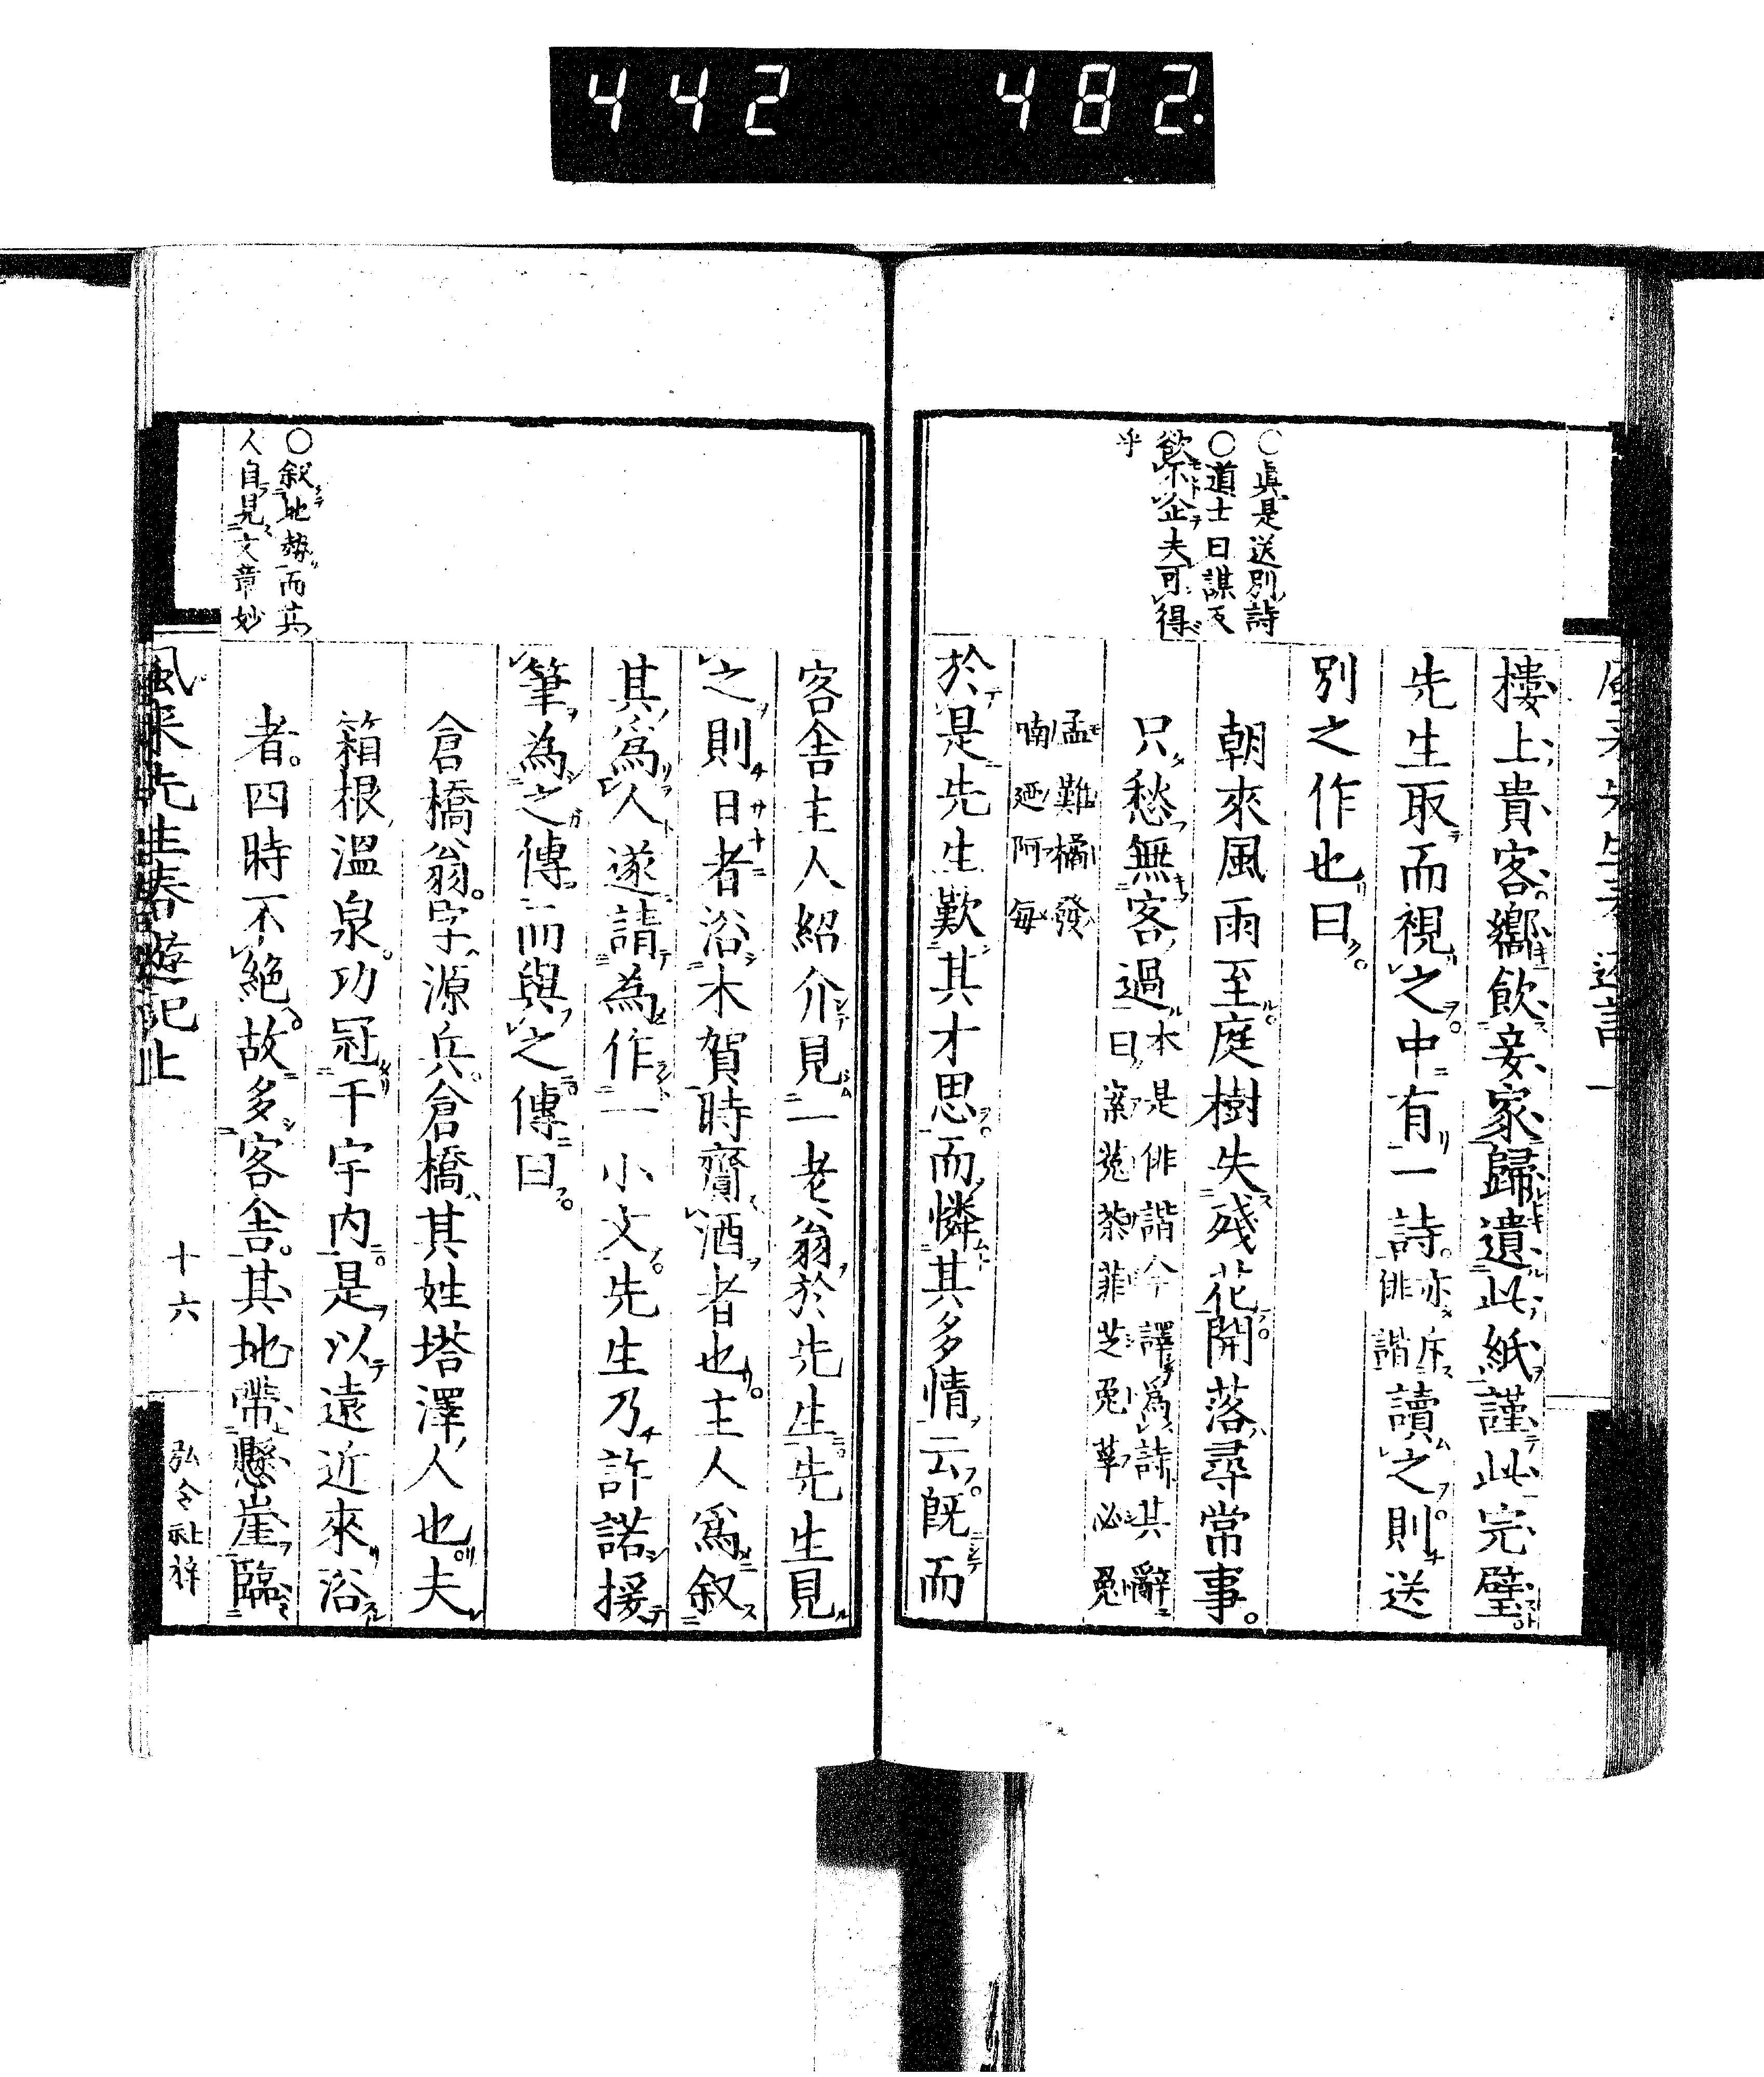 442 482.
○眞是送別詩
○道士曰謀反
飲不企夫可得
乎
樓上貴客嚮飲妾家歸遺此紙謹此完璧
先生取而視之中有一詩亦斥俳諧讀之則送
別之作也曰
朝來風雨至庭樹失殘花開落尋常事
只愁無客過本是俳諧今譯爲詩其辭
孟難橘發
喃廼阿每
於是先生歎其才思而憐其多情云既而
○叙地勢而其
人自見文章妙
客舍主人紹介見一老翁於先生先生見
之則日者浴木賀時齎酒者也主人爲叙
其爲人遂請為作一小文先生乃許諾援
筆為之傳而與之傳曰
倉橋翁字源兵倉橋其姓塔澤人也夫
箱根溫泉功冠于宇内是以遠近來浴
者四時不絶故多客舍其地帶懸崖臨
風来先生春遊記上
十六
弘令社梓